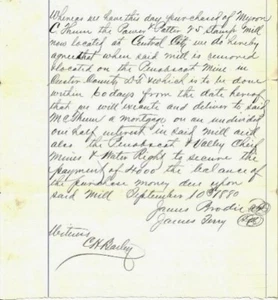 Whereas we have this day purchased of Myron
C Thum the James Patter 20 Stamp Mill
now located at Central City we do hereby
agree that when said Mill is removed
& located on the Penobscot Mine in
Custer County D.T. which is to be done
within 60 days from the date hereof
that we will execute and deliver to said
Mc Thum a mortgage on an undivided
one half interest in said Mill and
also the Penobscot & Valley Chief
Mines & Water Right to secure the
payment of 4000 the balance of
the purchase money due upon
said Mill September 10th 1880
James Brodie
James Terry
Witness
C K Darley